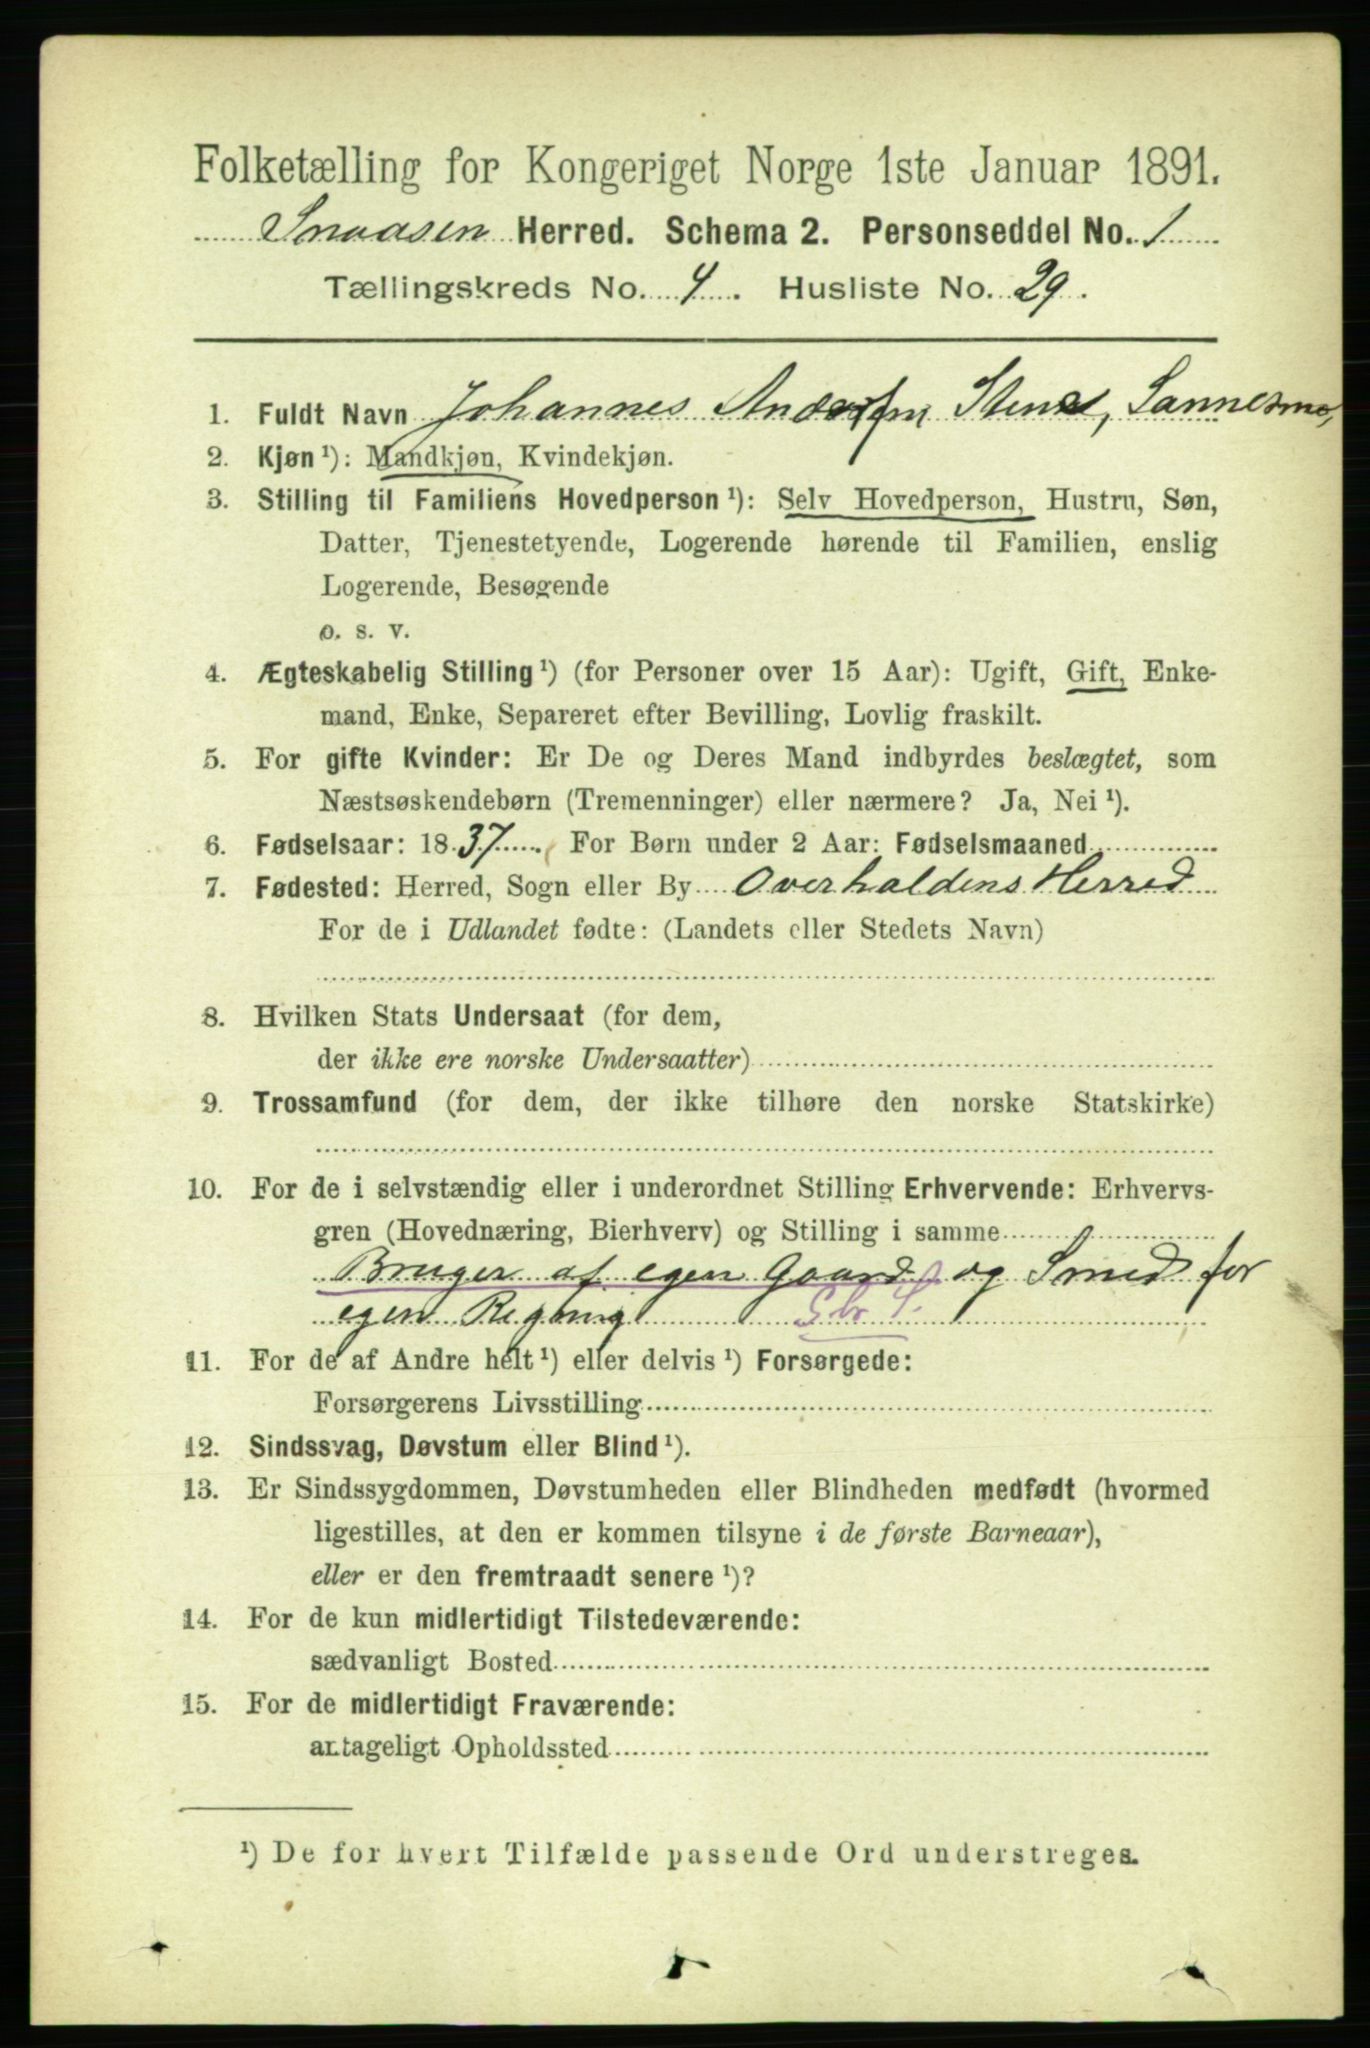 Folketælling for Kongeriget Norge 1ste Januar 1891.
Snaasen Herred. Schema 2. Personseddel No. 1
Tællingskreds No. 4. Husliste No. 29.
1. Fuldt Navn Johannes Andersen Sannesmo,
2. Kjøn¹): Mandkjøn, Kvindekjøn.
3. Stilling til Familiens Hovedperson¹): Selv Hovedperson, Hustru, Søn,
Datter, Tjenestetyende, Logerende hørende til Familien, enslig
Logerende, Besøgende
o. s. v.
4. Ægteskabelig Stilling¹) (for Personer over 15 Aar): Ugift, Gift, Enke-
mand, Enke, Separeret efter Bevilling, Lovlig fraskilt.
5. For gifte Kvinder: Er De og Deres Mand indbyrdes beslægtet, som
Næstsøskendebørn (Tremenninger) eller nærmere? Ja, Nei¹).
6. Fødselsaar: 1837. For Børn under 2 Aar: Fødselsmaaned
7. Fødested: Herred, Sogn eller By Overhaldens Herred
For de i Udlandet fødte: (Landets eller Stedets Navn)
8. Hvilken Stats Undersaat (for dem,
der ikke ere norske Undersaatter)
9. Trossamfund (for dem, der ikke tilhøre den norske Statskirke)
10. For de i selvstændig eller i underordnet Stilling Erhvervende: Erhvervs-
gren (Hovednæring, Bierhverv) og Stilling i samme
Bruger af egen Gaard og Smed for
egen Regning Gbr S.
11. For de af Andre helt¹) eller delvis¹) Forsørgede:
Forsørgerens Livsstilling
12. Sindssvag, Døvstum eller Blind¹).
13. Er Sindssygdommen, Døvstumheden eller Blindheden medfødt (hvormed
ligestilles, at den er kommen tilsyne i de første Barneaar),
eller er den fremtraadt senere¹)?
14. For de kun midlertidigt Tilstedeværende:
sædvanligt Bosted
15. For de midlertidigt Fraværende:
antageligt Opholdssted
¹) De for hvert Tilfælde passende Ord understreges.